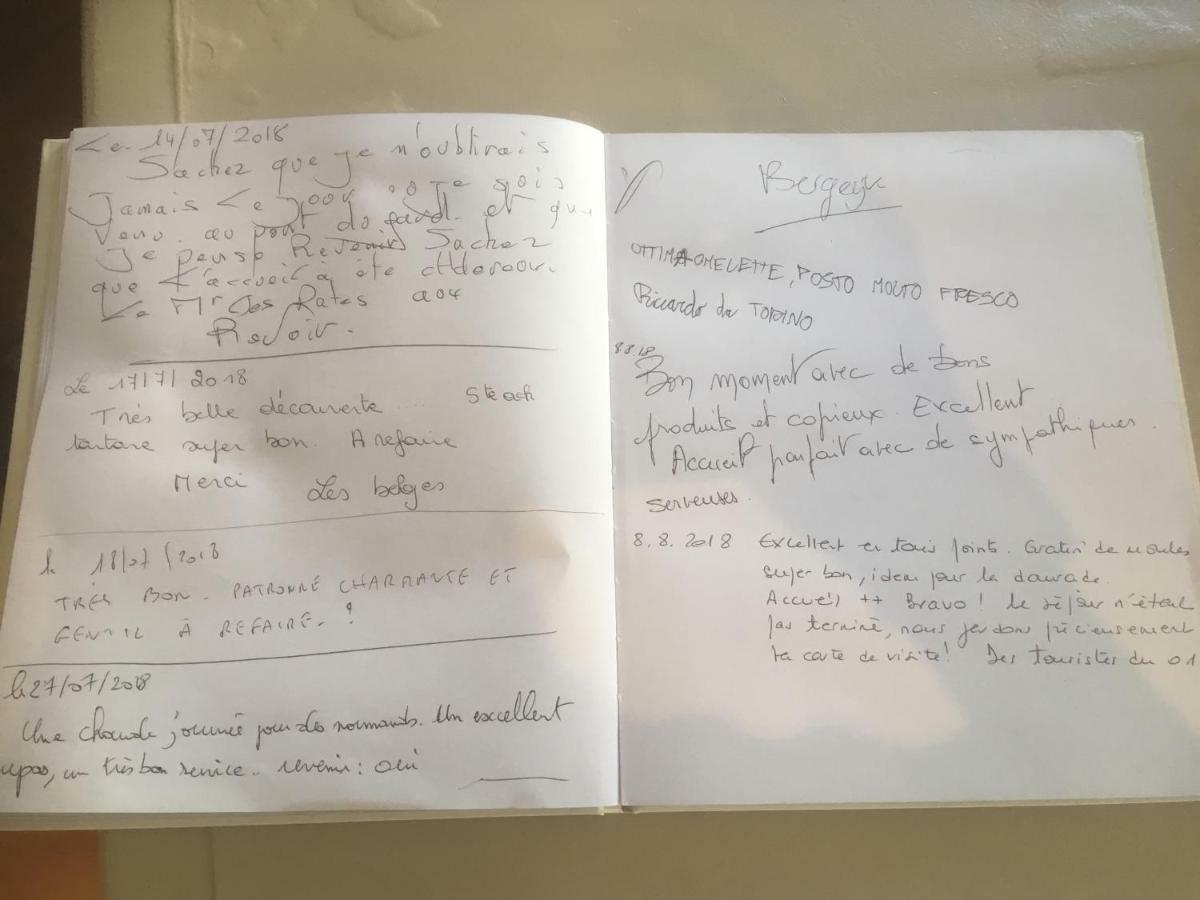 Le 14/07/2018
Sachez que je n'oublirais
Jamais Le Jour où Je suis
Venu au pont du gard. et que
Je pense Revenir Sachez
que L'accueil a été
Le Mr des Rates aoc
Revoir.
Le 17/7/2018
Très belle découverte .... Steack
tartare super bon. A refaire
Merci Les belges
le 18/07/2018
TRÉS BON. PATRONNE CHARMANTE ET
GENTIL À REFAIRE. !
le 27/07/2018
Une chaude journée pour des normands. Un excellent
repas, un très bon service.. revenir : oui
Bergeyk
OTTIMA OMELETTE, POSTO MOLTO FRESCO
Riccardo da TORINO
8.8.18
Bon moment avec de bons
produits et copieux. Excellent
Accueil parfait avec de sympathiques
serveuses.
8.8.2018 Excellent en tous points. Gratin de moules
super bon, idem pour la daurade.
Accueil ++ Bravo ! le séjour n'étant
pas terminé, nous gardons précieusement
ta carte de visite ! Des touristes du 01